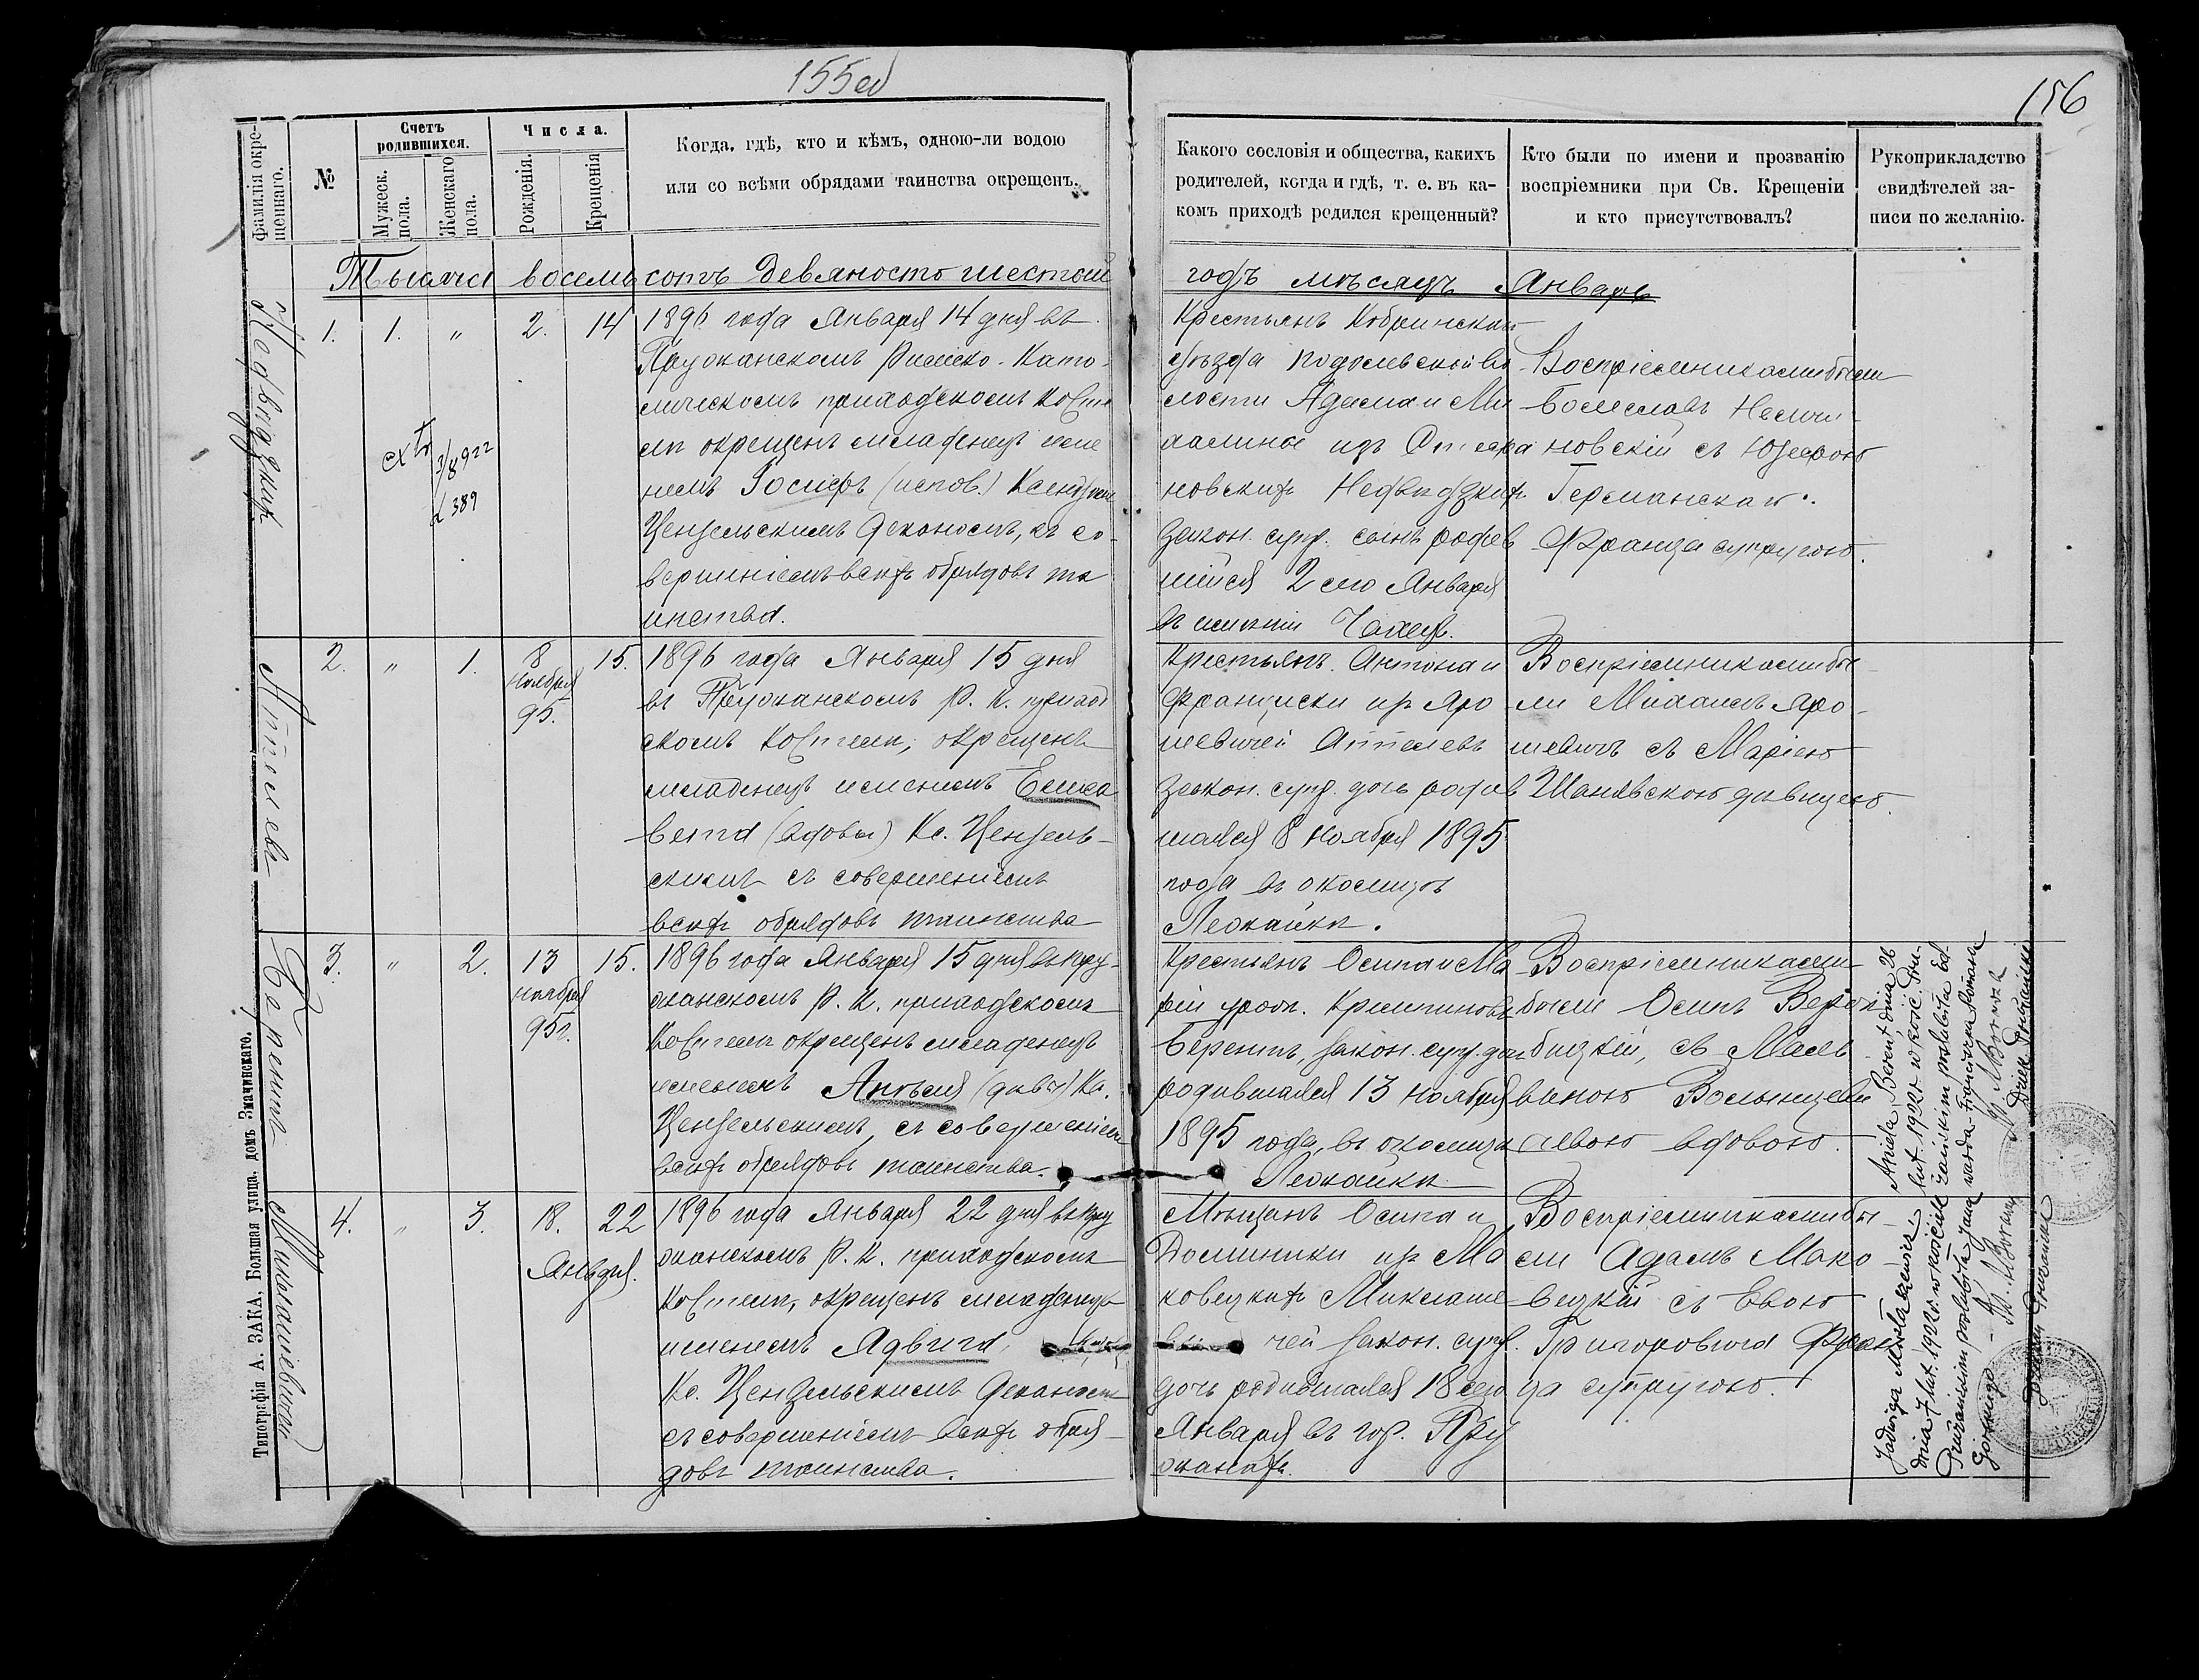 155об
156
Фамилія окре-
щеннаго.
№
Счетъ
родившихся.
Мужеск.
пола.
Женскаго
пола.
Числа.
Рожденія.
Крещенія
Когда, гдѣ, кто и кѣмъ, одною-ли водою
или со всѣми обрядами таинства окрещенъ.
Какого сословія и общества, какихъ
родителей, когда и гдѣ, т. е. въ ка-
комъ приходѣ родился крещенный?
Кто были по имени и прозванію
воспріемники при Св. Крещеніи
и кто присутствовалъ?
Рукоприкладство
свидѣтелей за-
писи по желанію.
Тысяча восемьсотъ девяносто шестой годъ мѣсяцъ Январь
Недвѣдзкій
1. 1. „ 2. 14
3/8 922
389
1896 года Января 14 дня въ
Пружанскомъ Римско-Като-
лическомъ приходскомъ косте
лѣ окрещенъ младенецъ име
немъ Іосифъ (испов.) Ксендзомъ
Цензельскимъ Деканомъ, съ со-
вершеніемъ всѣхъ обрядовъ та
инства.
Крестьянъ Кобринскаго
уѣзда Подолеьской во-
лости Адама и Ми
халины изъ
новскихъ Недвѣдзкихъ
закон. супр. сынъ родив
шійся 2 сего Января
въ имѣніи Чахецъ.
Воспріемниками были
Болеславъ
новскій съ Юзефою
Германскаго
Франца супругою.
Аппелевъ
2. „ 1. 8 15.
Ноября
95.
1896 года Января 15 дня
въ Пружанскомъ Р. К. приход
скомъ костелѣ, окрещенъ
младенецъ именемъ Елиса
вета (вдовы) Кс. Цензель-
скимъ съ совершеніемъ
всѣхъ обрядовъ таинства
Крестьянъ Антона и
Франциски изъ Яро
шевичей Аппелевъ
закон. супр. дочь родив
шаяся 8 Ноября 1895
года въ околицѣ
Леокайки.
Воспріемниками бы-
ли Михаилъ Яро-
шевичъ съ Маріею
Шанявскою дѣвицею.
Берентъ
3. „ 2. 13 15.
ноября
95г.
1896 года Января 15 дня въ Пру-
жанскомъ Р. К. приходскомъ
костелѣ окрещенъ младенецъ
именемъ Анѣеля (дѣвы) Кс.
Цензельскимъ, съ совершеніемъ
всѣхъ обрядовъ таинства.
Крестьянъ Осипа и Ма
ріи урож.
Берентъ, закон. супр. дочь
родившаяся 13 Ноября
1895 года, въ околицѣ
Леокайки
Воспріемниками
были Осипъ
съ Маль-
виною
вдовою.
Миклашевичъ
4. „ 3. 18. 22
Января.
1896 года Января 22 дня въ Пру
жанскомъ Р. К. приходскомъ
костелѣ, окрещенъ младенецъ
именемъ Ядвига,
Кс. Цензельскимъ Деканомъ
съ совершеніемъ всѣхъ обря-
довъ таинства.
Мѣщанъ Осипа и
Доминики изъ Ма
ковецкихъ Миклаше
чей закон. супр.
дочь родившаяся 18 сего
Января въ гор. Пру
жанахъ.
Воспріемниками бы-
ли Адамъ Мако-
вецкій съ Евою
Григоровича Фран
ца супругою.
Aniela Berent dnia 26
lut. 1922 r. w kośc. Pru-
żańskim poślubiła Ed-
warda-Franciszka Romana
Ks.
Dziek. Prużański
Jadwiga Miklaszewicz
dnia 7 lut. 1922 r. w kościele
Prużańskim poślubiła Jana
Ks.
Dziekan Prużański
Типографія А. ЗАКА, Большая улица, домъ Значинскаго.